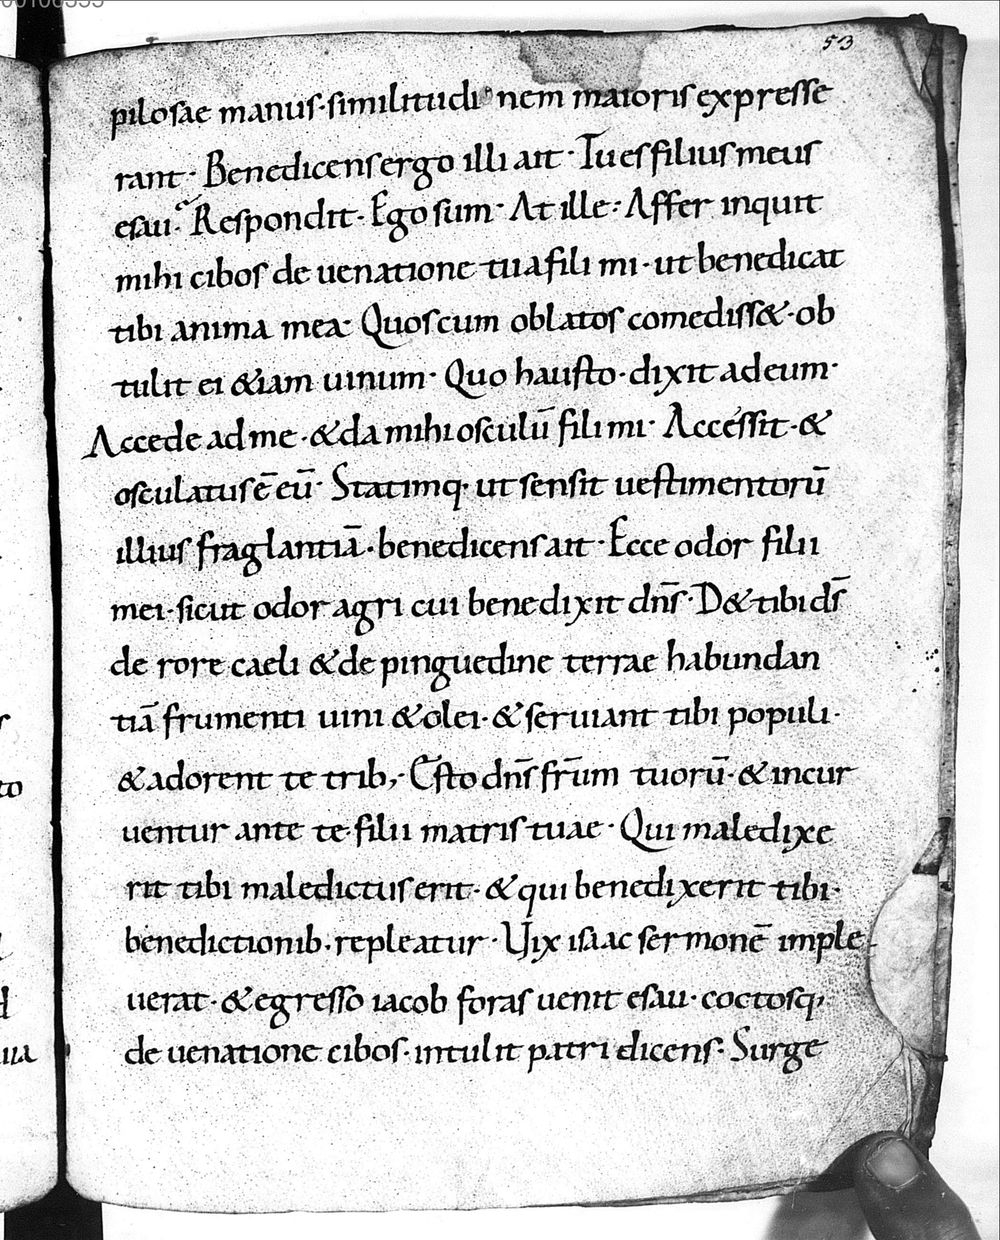 53
pilosae manus · similitudinem maioris expresse
rant · Benedicens ergo illi ait · Tu es filius meus
esau · Respondit · Ego sum · At ille : Affer inquit
mihi cibos de uenatione tua fili mi · ut benedicat
tibi anima mea · Quos cum oblatos comediss& · ob
tulit ei &iam uinum · Quo hausto · dixit ad eum ·
Accede ad me · & da mihi osculū fili mi · Accessit · &
osculatus ē eū · Statimq; ut sensit uestimentorū
illius fraglantiā · benedicens ait · Ecce odor filii
mei · sicut odor agri cui benedixit dn̄s · D& tibi ds̄
de rore caeli & de pinguedine terrae habundan
tiā frumenti uini & olei · & seruiant tibi populi ·
& adorent te trib; · Esto dn̄s fr̄um tuorū · & incur
uentur ante te · filii matris tuae · Qui maledixe
rit tibi maledictus erit · & qui benedixerit tibi ·
benedictionib · repleatur · Uix isaac sermonē imple
uerat · & egresso iacob foras uenit esau · coctosq;
de uenatione cibos · intulit patri dicens · Surge